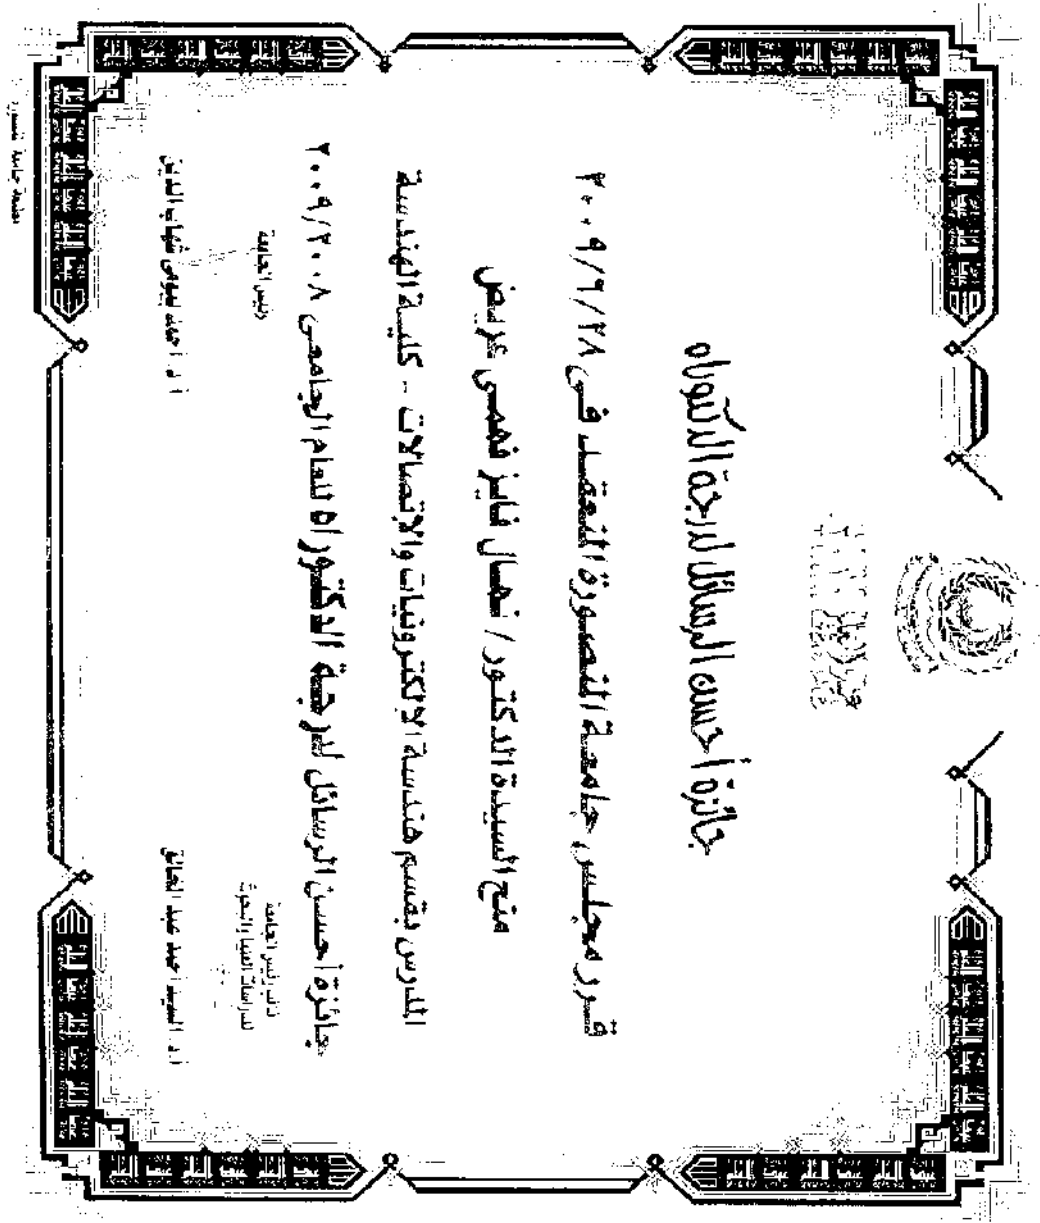 جائزة أحسن الرسائل لدرجة الدكتوراه
قرر مجلس جامعة المنصورة المنعقد فى ٢٠٠٩/٦/٢٨
منح السيدة الدكتور / نهال فايز فهمى عريض
المدرس بقسم هندسة الإلكترونيات والإتصالات - كلية الهندسة
جائزة أحسن الرسائل لدرجة الدكتوراه للعام الجامعى ٢٠٠٩/٢٠٠٨
نائب رئيس الجامعة
للدراسات العليا والبحوث
رئيس الجامعة
أ.د. السيد احمد عبد الخالق
أ.د. أحمد بيومى شهاب الدين
مطبعة جامعة المنصورة